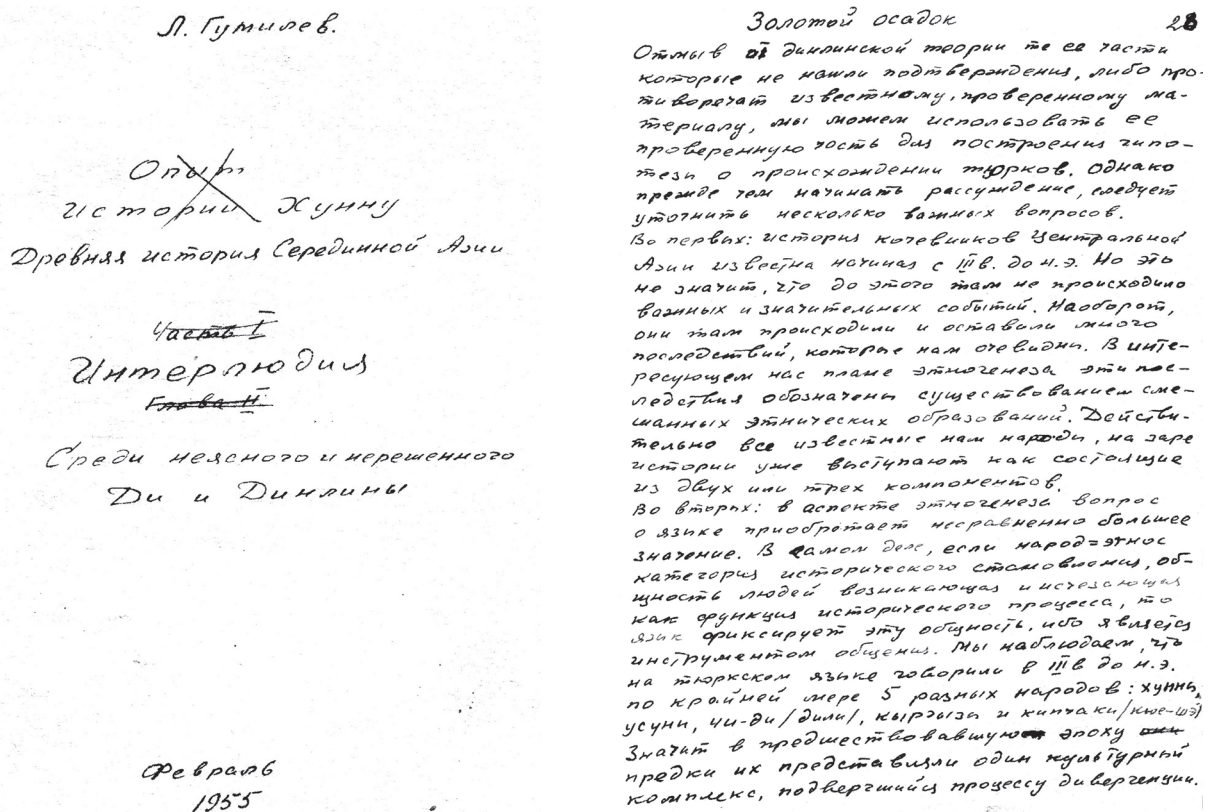 Л. Гумилев.
Опыт
истории Хунну
Древняя история Серединной Азии
Часть I
Интерлюдия
Глава II
Среди неясного и нерешенного
Ди и Динлины
Февраль
1955
Золотой осадок
Отмыв от динлинской теории те ее части
которые не нашли подтверждения, либо про-
тиворечат известному, проверенному ма-
териалу, мы можем использовать ее
проверенную часть для построения гипо-
тезы о происхождении тюрков. Однако
прежде чем начинать рассуждение, следует
уточнить несколько важных вопросов.
Во первых: история кочевников Центральной
Азии известна начиная с III в. до н.э. Но это
не значит, что до этого там не происходило
важных и значительных событий. Наоборот,
они там происходили и оставили много
последствий, которые нам очевидны. В инте-
ресующем нас плане этногенеза эти пос-
ледствия обозначены существованием сме-
шанных этнических образований. Действи-
тельно все известные нам народы, на заре
истории уже выступают как состоящие
из двух или трех компонентов.
Во вторых: в аспекте этногенеза вопрос
о языке приобретает несравненно большее
значение. В самом деле, если народ=этнос
категория исторического становления, об-
щность людей возникающая и исчезающая
как функция исторического процесса, то
язык фиксирует эту общность, ибо является
инструментом общения. Мы наблюдаем, что
на тюркском языке говорили в III в до н.э.
по крайней мере 5 разных народов: хунны,
усуни, чи-ди/дили/, кыргызы и кипчаки/кюе-шэ/
Значит в предшествовавшую эпоху они
предки их представляли один культурный
комплекс, подвергшийся процессу дивергенции.